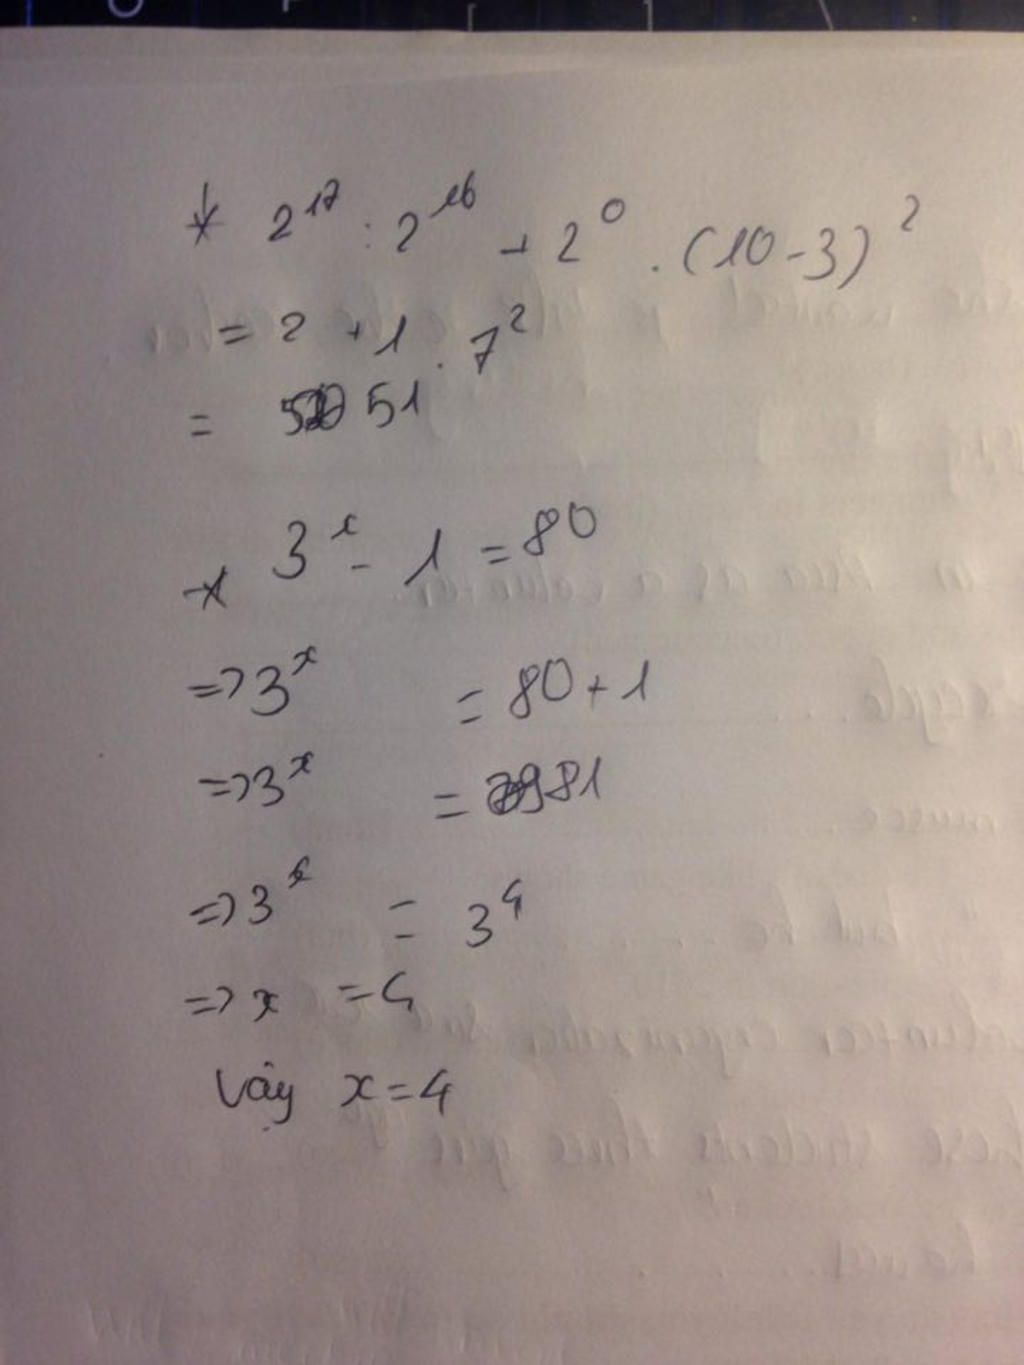 * 2¹⁷ : 2¹⁶ + 2⁰ . (10-3)²
= 2 + 1 . 7²
= 51
* 3ˣ - 1 = 80
=> 3ˣ = 80 + 1
=> 3ˣ = 81
=> 3ˣ = 3⁴
=> x = 4
Vậy x = 4